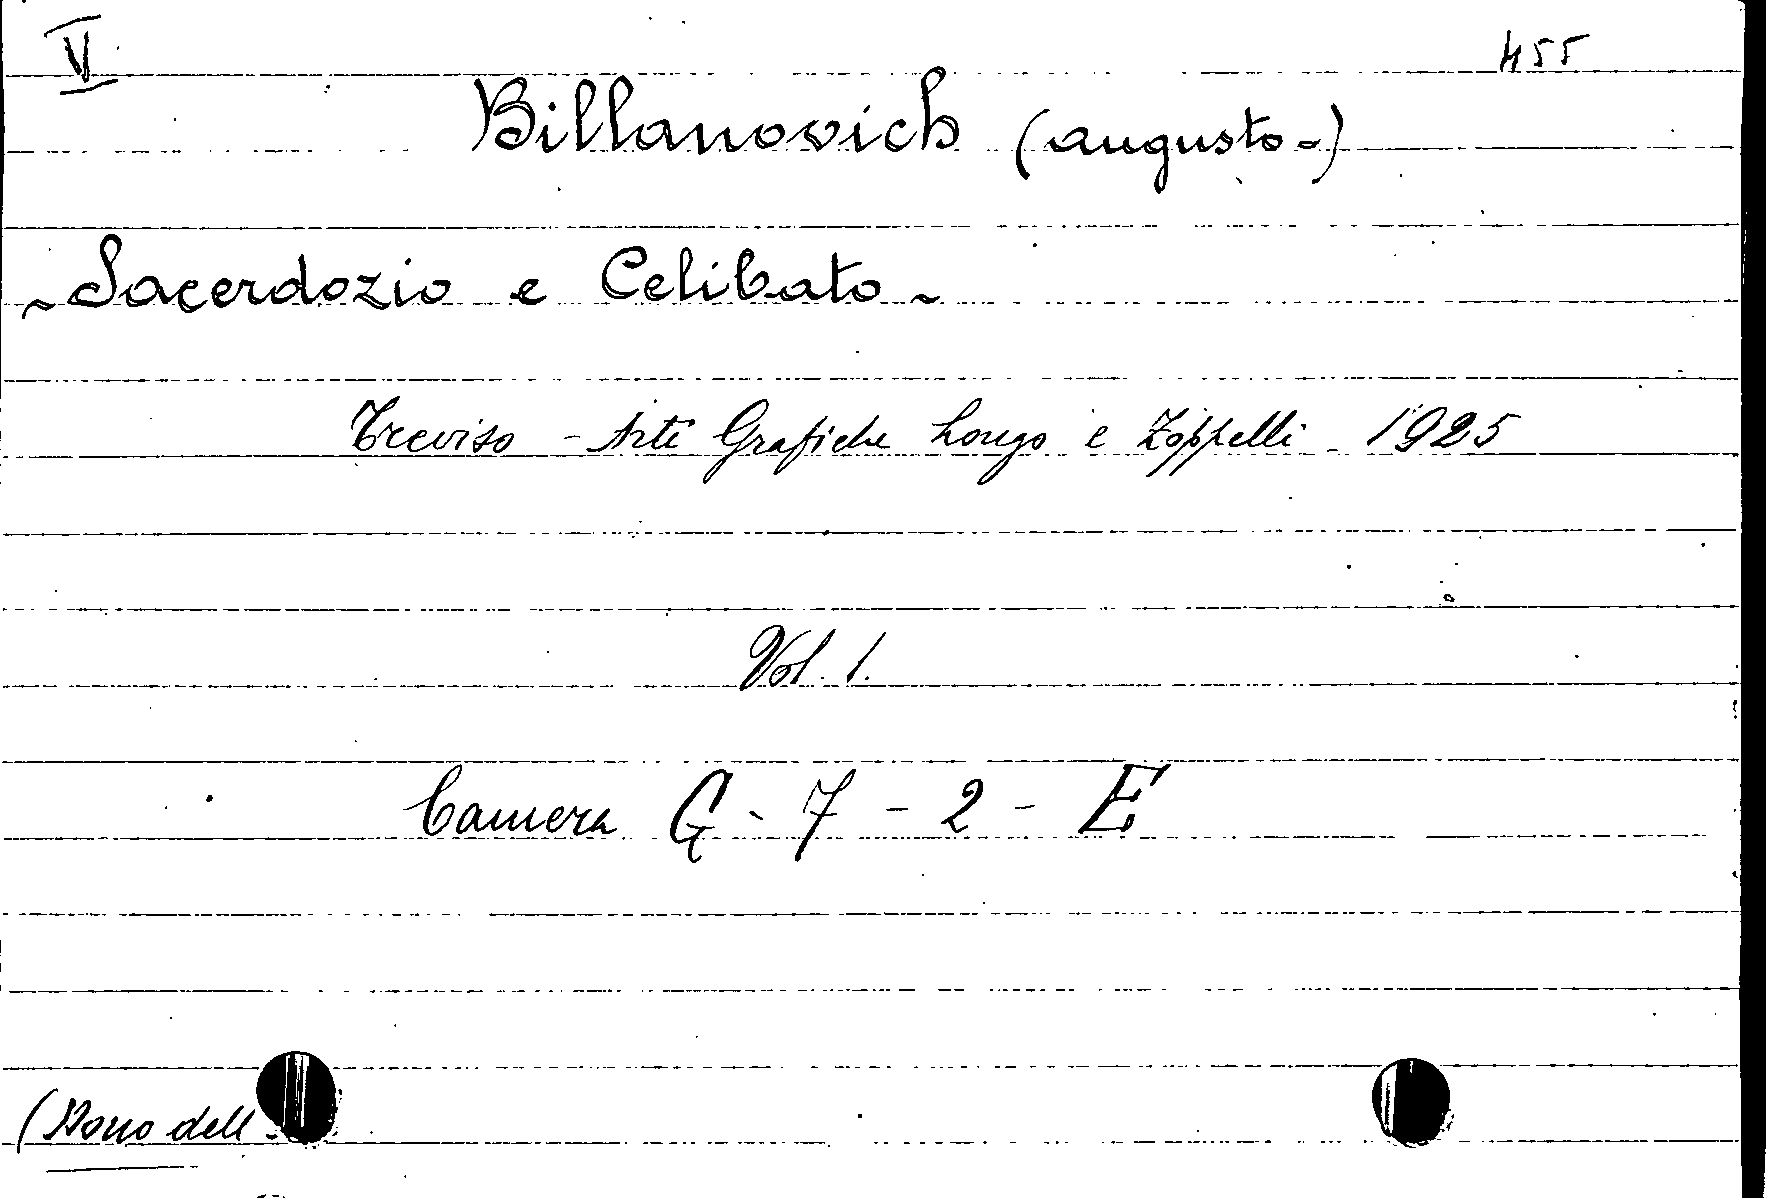 V 455
Billanovich (Augusto-)
~Sacerdozio e Celibato~
Treviso - Arti Grafiche Longo e Zoppelli - 1925
Vol. 1.
Camera G - 7 - 2 - E
(Dono dell